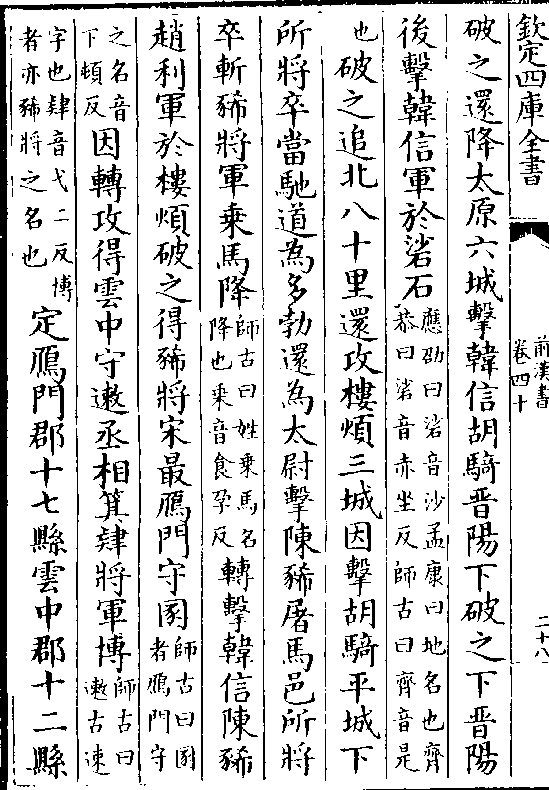 欽定四庫全書
前漢書
卷四十
二十八
破之還降太原六城擊韓信胡騎晉陽下破之下晉陽
後擊韓信軍於砦石應劭曰砦音沙孟康曰地名也齊
恭曰砦音赤坐反師古曰齊音是
也破之追北八十里還攻樓煩三城因擊胡騎平城下
所將卒當馳道為多勃還為太尉擊陳豨屠馬邑所將
卒斬豨將軍乗馬降師古曰姓乗馬名
降也乗音食孕反轉擊韓信陳豨
趙利軍於樓煩破之得豨將宋最鴈門守圂師古曰圂
者鴈門守
之名音
下頓反因轉攻得雲中守遬丞相箕肄將軍博師古曰
遬古速
字也肄音弋二反博
者亦豨將之名也定鴈門郡十七縣雲中郡十二縣